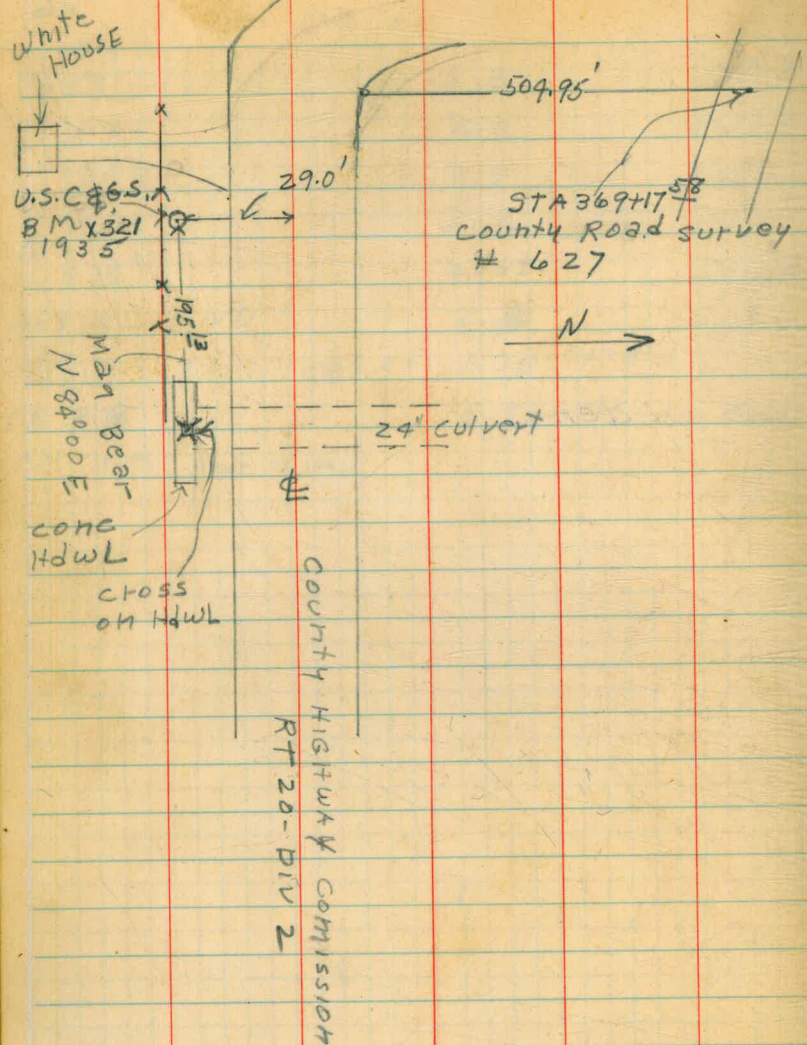 White
House
504.95'
29.0'
U.S.C.&G.S.
BM X321
1935
STA 369+17 58
County Road Survey
# 627
N
195 13
Mag Bear
N 84°00 E
24" culvert
℄
conc
HdwL
cross
on HdwL
County Highway Comission
RT 20 - Div 2